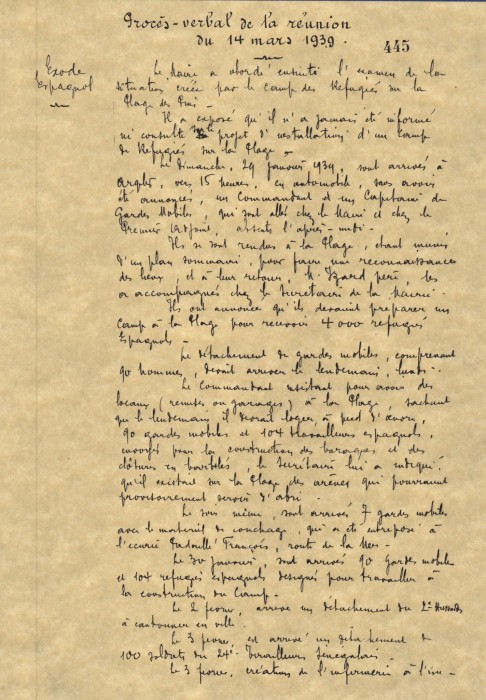 Procès-verbal de la réunion
du 14 mars 1939.
445
Exode
Espagnol
Le Maire a abordé ensuite l'examen de la
situation créée par le Camp des Réfugiés sur la
Plage des Pins.
Il a exposé qu'il n'a jamais été informé
ni consulté projet d'installation d'un Camp
de Réfugiés sur la Plage.
Le Dimanche, 29 Janvier 1939, sont arrivés à
Argelès, vers 15 heures, en automobile, sans avoir
été annoncés, un Commandant et un Capitaine de
Gardes Mobiles, qui sont allés chez le Maire et chez le
Premier Adjoint, absents l'après-midi.
Ils se sont rendus à la Plage, étant munis
d'un plan sommaire, pour faire une reconnaissance
des lieux, et à leur retour, M. père, les
a accompagnés chez le Secrétaire de la Mairie.
Ils ont annoncé qu'ils devaient préparer un
Camp à la Plage pour recevoir 4000 réfugiés
Espagnols.
Le détachement de gardes mobiles, comprenant
90 hommes, devait arriver le lendemain, lundi.
Le Commandant insistant pour avoir des
locaux (remises ou garages) à la Plage, sachant
que le lendemain il devrait loger, à pied d'œuvre,
90 gardes mobiles et 104 travailleurs espagnols,
envoyés pour la construction des baraques et des
clôtures en barbelés, le Secrétaire lui a indiqué
qu'il existait sur la Plage des arènes qui pourraient
provisoirement servir d'abri.
Le soir même, sont arrivés 7 gardes mobiles
avec le matériel de couchage, qui a été entreposé à
l'écurie François, route de la Mer.
Le 30 Janvier, sont arrivés 90 Gardes mobiles
et 104 réfugiés espagnols désignés pour travailler à
la construction du Camp.
Le 2 février, arrive un détachement du 2e Hussards
à cantonner en ville.
Le 3 février, est arrivé un détachement de
100 soldats du 24e Tirailleurs Sénégalais.
Le 3 février, création de l'infirmerie à l'im-